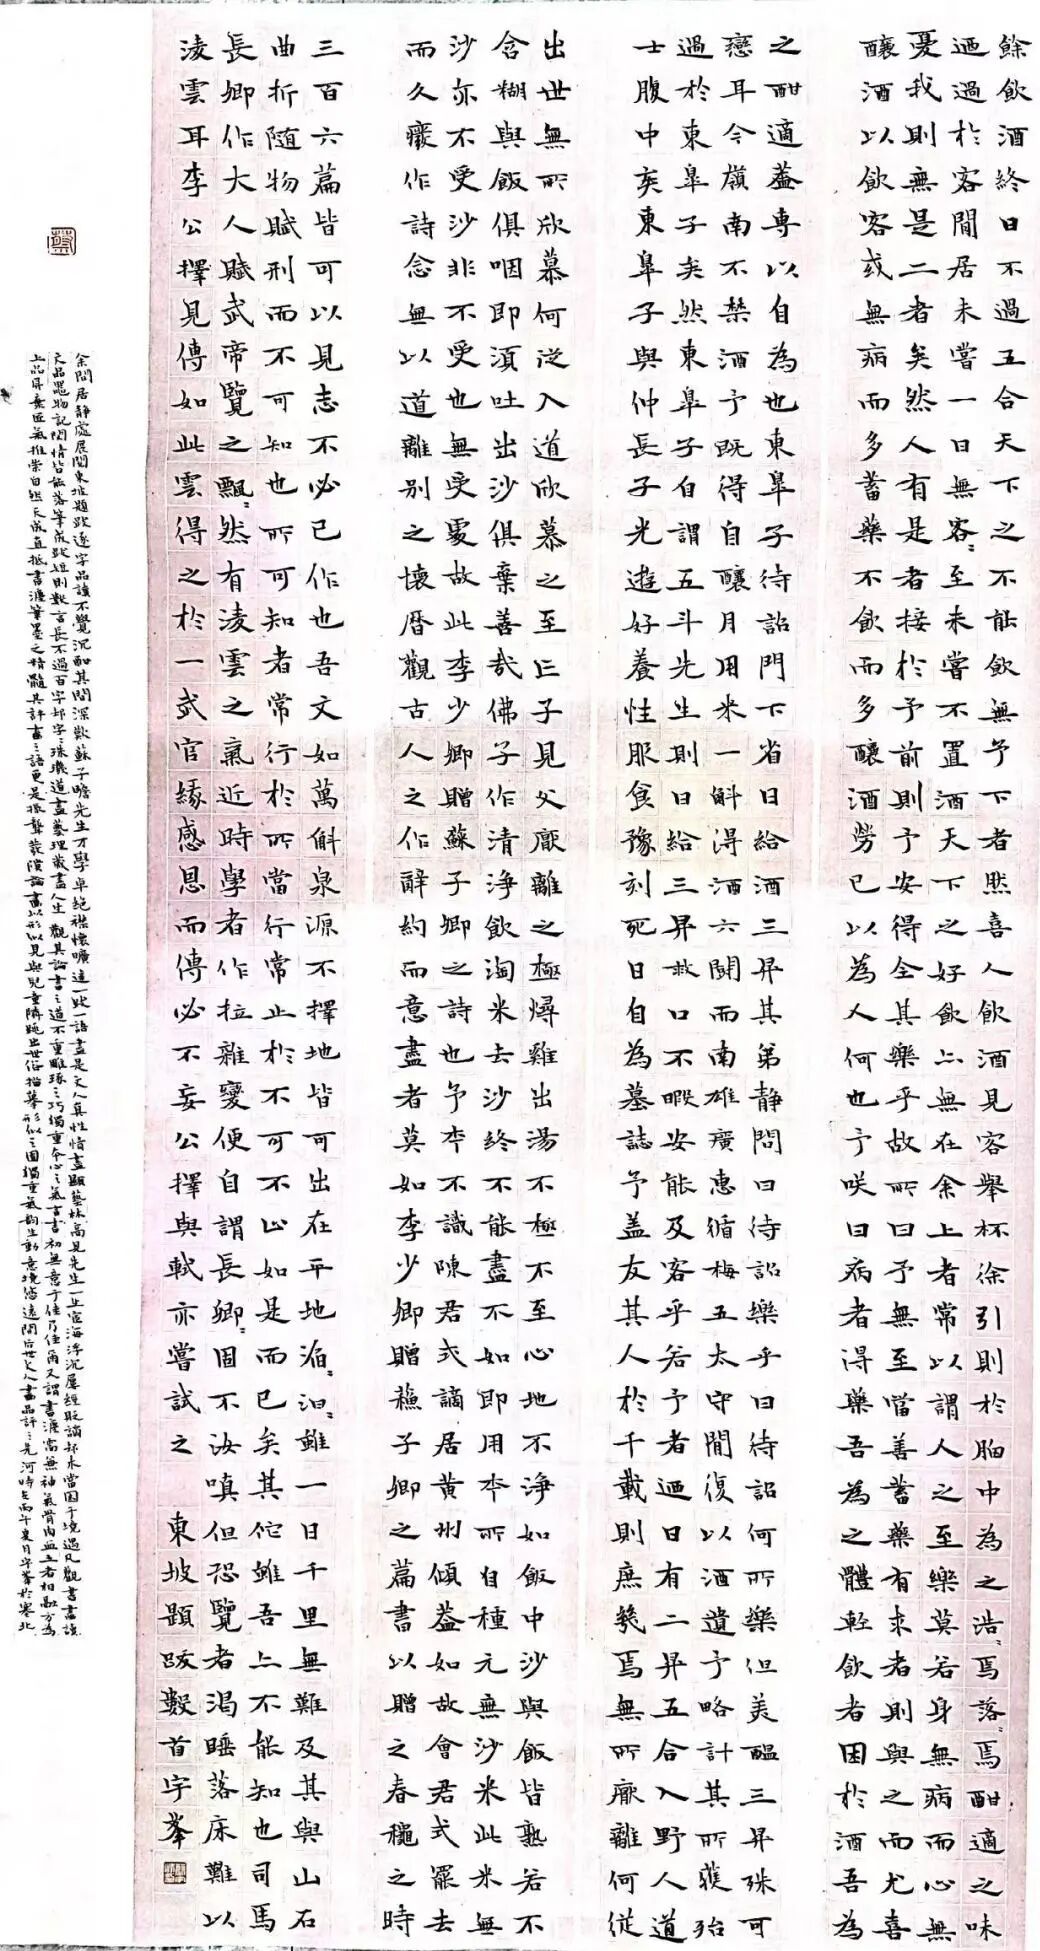 餘飲酒終日不過五合天下之不能飲無予下者然喜人飲酒見客舉杯徐引則於胸中為之浩〻焉落〻焉酣適之味
迺過於客閒居未嘗一日無客〻至未嘗不置酒天下之好飲亦無在余上者常以謂人之至樂莫若身無病而心無
憂我則無是二者矣然人有是者接於予前則予安得全其樂乎故所曰予無至噹善蓄藥有求者則與之而尤喜
釀酒以飲客或無病而多蓄藥不飲而多釀酒勞己以為人何也予咲曰病者得藥吾為之體輕飲者困於酒吾為
之酣適蓋專以自為也東皋子待詔門下省日給酒三昇其弟靜問曰待詔樂乎曰待詔何所樂但美醞三昇殊可
戀耳今嶺南不禁酒予既得自釀月用米一斛得酒六鬭而南雄廣惠循梅五太守間復以酒遺予略計其所獲殆
過於東皋子矣然東皋子自謂五斗先生則日給三昇救口不暇安能及客乎若予者迺日有二昇五合入野人道
士腹中矣東皋子與仲長子光遊好養性服食豫刻死日自為墓誌予蓋友其人於千載則庶幾焉無所厭離何從
出世無所欣慕何從入道欣慕之至亡子見父厭離之極燖雞出湯不極不至心地不淨如飯中沙與飯皆熟若不
含糊與飯俱咽即須吐出沙俱棄善哉佛子作清淨飲淘米去沙終不能盡不如即用本所自種元無沙米此米無
沙亦不受沙非不受也無受處故此李少卿贈蘇子卿之詩也予本不識陳君式謫居黃州傾蓋如故會君式罷去
而久癈作詩念無以道離别之懷曆觀古人之作辭約而意盡者莫如李少卿贈蘇子卿之篇書以贈之春穐之時
三百六篇皆可以見志不必己作也吾文如萬斛泉源不擇地皆可出在平地滔〻汩〻雖一日千里無難及其與山石
曲折隨物賦刑而不可知也所可知者常行於所當行常止於不可不止如是而已矣其佗雖吾亦不能知也司馬
長卿作大人賦武帝覽之飄〻然有淩雲之氣近時學者作拉雜變便自謂長卿〻固不汝嗔但恐覽者渴睡落床難以
淩雲耳李公擇見傳如此雲得之於一武官緣感恩而傳必不妄公擇與軾亦嘗試之 東坡題跋數首宇峯
余閒居靜處展閱東坡題跋逐字品讀不覺沉酣其間深歎蘇子瞻先生才學卓絕襟懷曠達一跋一語盡是文人真性情盡顯藝林高見先生一生宦海浮沉屢經貶謫却未嘗困于境遇凡觀書畫讀
文品題物記閒情皆能落筆成跋短則數言長不過百字却字〻珠璣道盡藝理藏盡人生觀其論書之道不重雕琢之巧獨重本心之氣言書初無意于佳乃佳爾又謂書法當無神氣骨肉血五者相融方為
上品屏棄匠氣推崇自然天成直抵書法筆墨之精髓其評畫之語更是振聾發聵論畫以形似見與兒童隣跳出世俗描摹形似之囿獨重氣韵生動意境悠遠開后世文人畫品評之先河時在丙午夏月宇峯於塞北